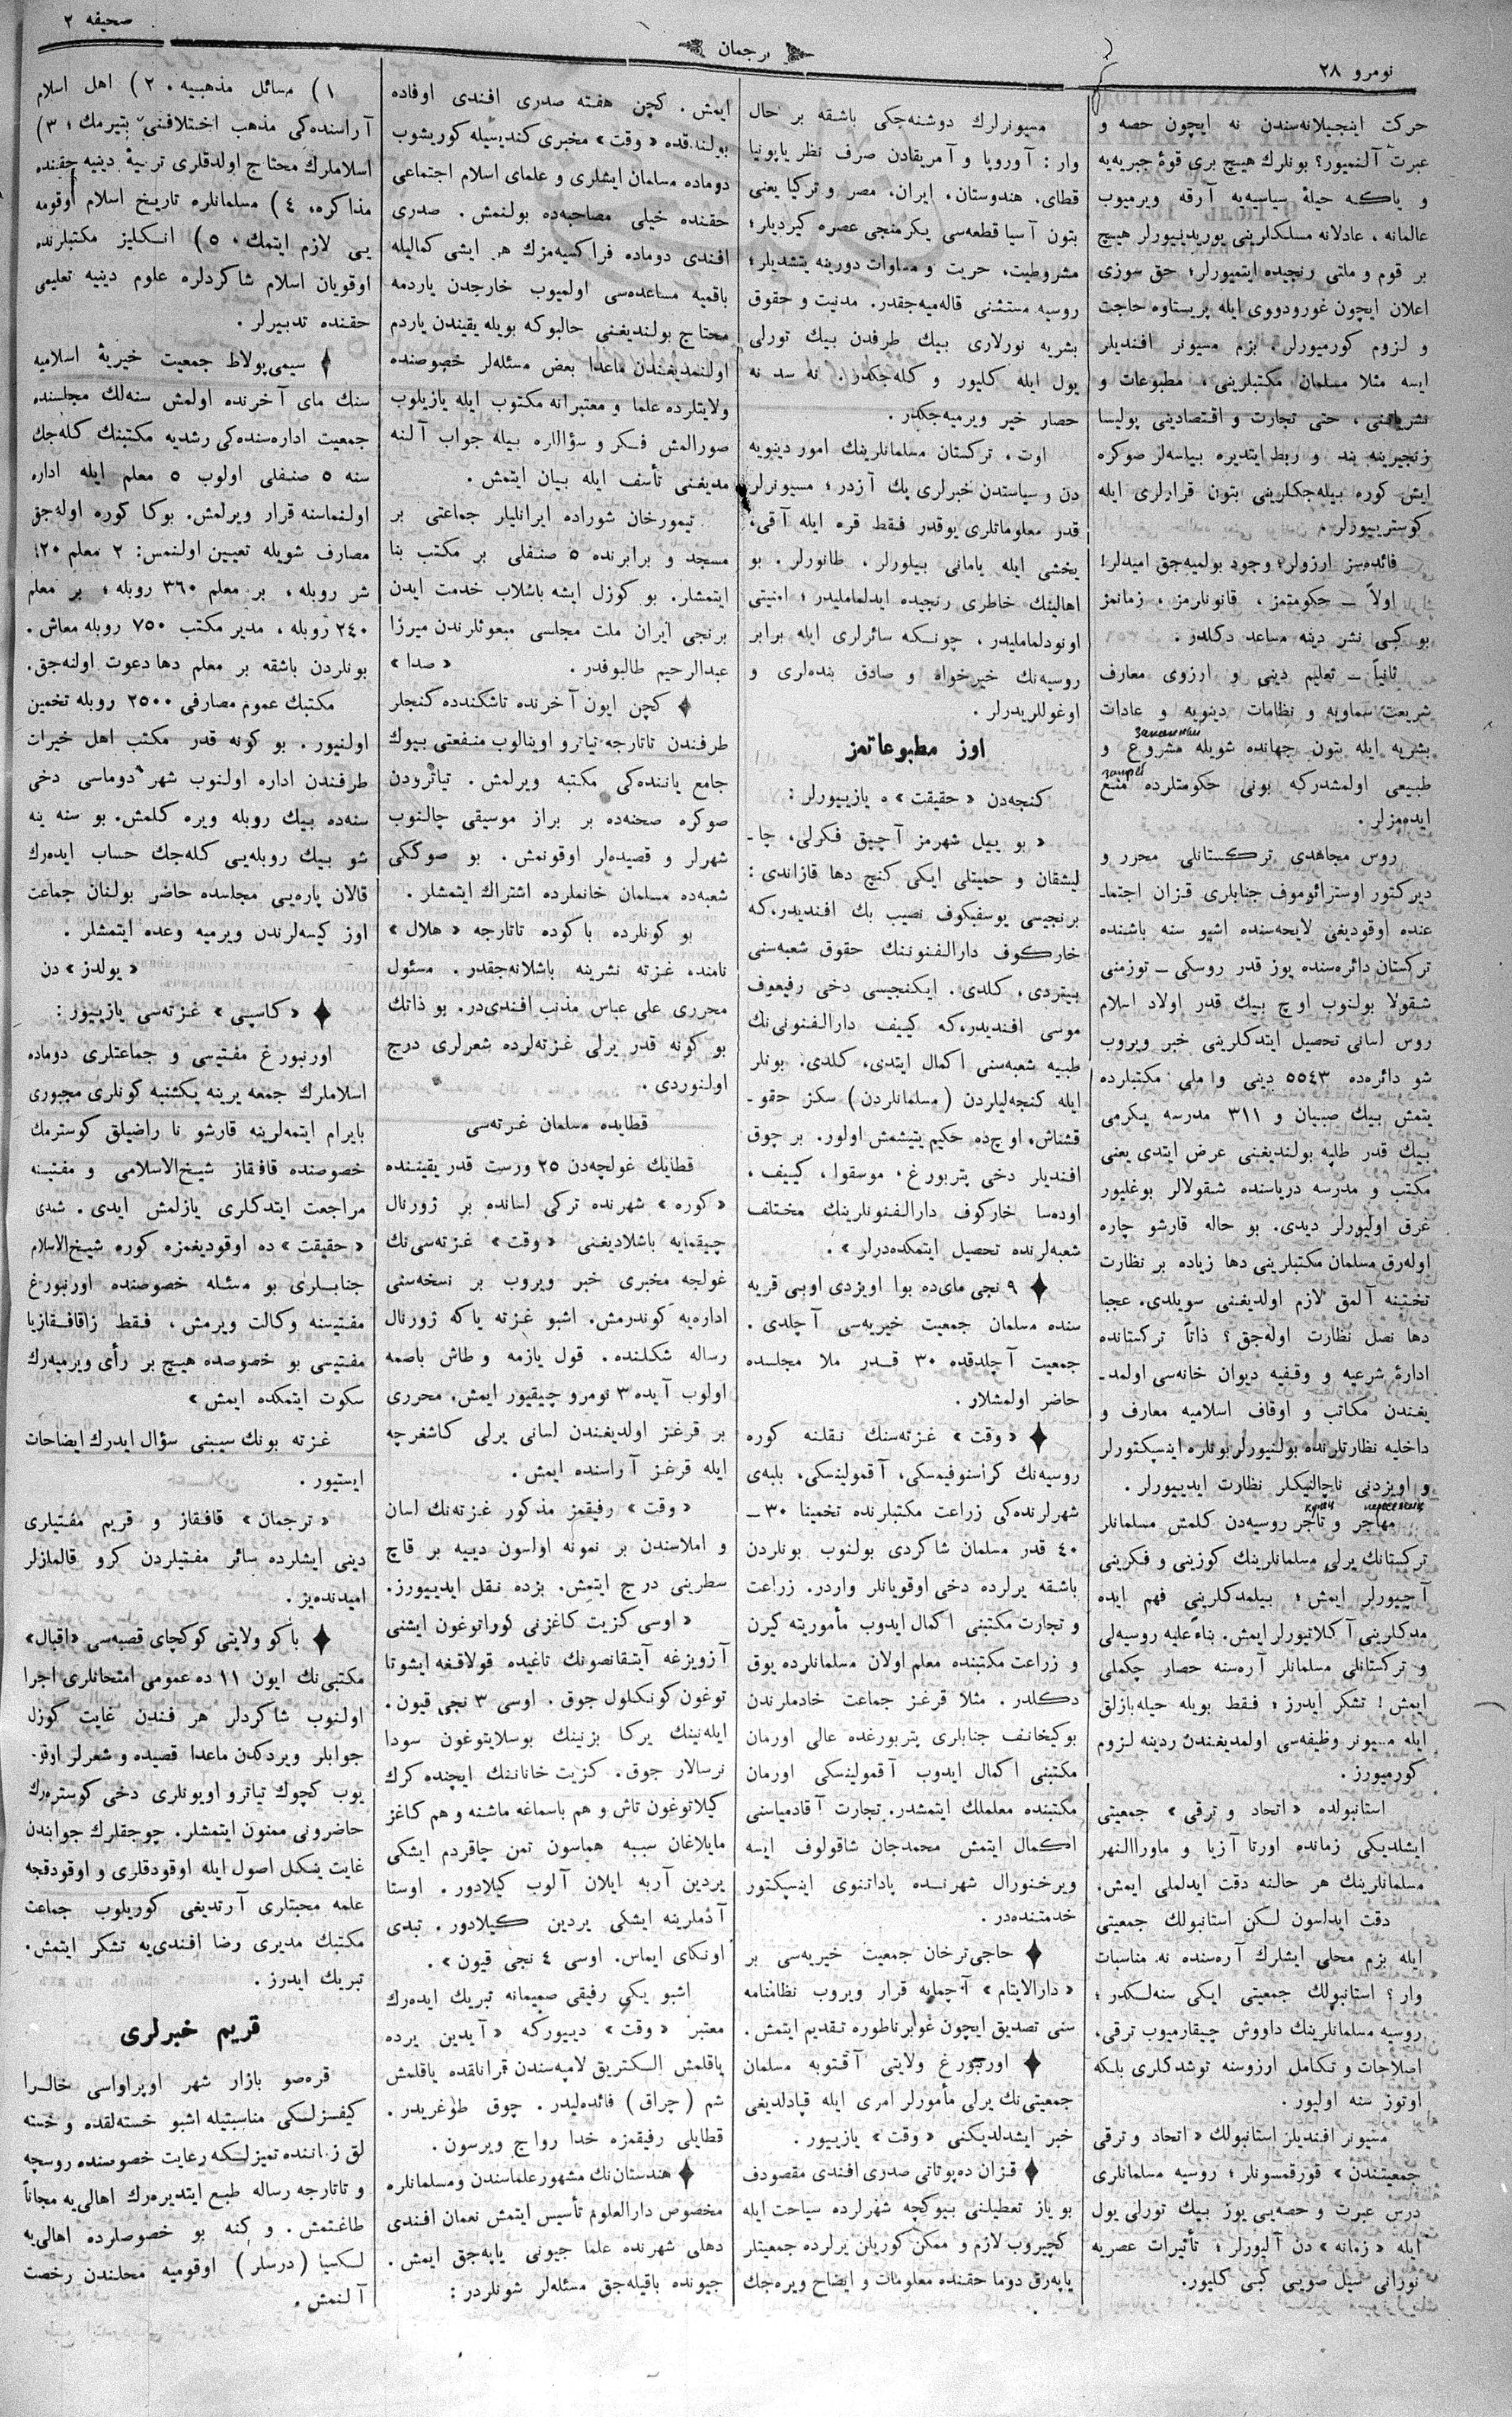 نومرو ٢٨
ترجمان
صحیفه ٢
حركت اینجیلانه‌سندن نه ایچون حصه و
عبرت آلنمیور؟ بونلرك هیچ بری قوهٔ جبریه‌یه
و یاكه حیلهٔ سیاسیه‌یه آرقه ویرمیوب
عالمانه ، عادلانه مسلكلرینی یوریدییورلر هیچ
بر قوم و ملتی رنجیده ایتمیورلر؛ حق سوزی
اعلان ایچون غورودووی ایله پریستاوه حاجت
و لزوم كورمیورلر. بزم مسیونر افندیلر
ایسه مثلا مسلمان مكتبلرینی ، مطبوعات و
نشریاتنی ، حتی تجارت و اقتصادینی پولیسا
زنجیرینه بند و ربط ایتدیره بیاسه‌لر صوكره
ایش كوره بیله‌جكلرینی بتون قرارلری ایله
كوستریییورلر .
فائده‌سز ارزولر؛ وجود بولمیه‌جق امیدلر!
اولاً ــ حكومتمز ، قانونلرمز ، زمانمز
بو كبی نشر دینه مساعد دكلدر .
ثانیاً ــ تعلیم دینی و ارزوی معارف
شریعت سماویه و نظامات دینویه و عادات
بشریه ایله بتون جهانده شویله مشروع و
طبیعی اولمشدركه بونی حكومتلرده منع
ایده‌مزلر .
روس مجاهدی تركستانلی محرر و
دیركتور اوسترائوموف جنابلری قزان اجتما-
عنده اوقودیغی لایحه‌سنده اشبو سنه باشنده
تركستان دائره‌سنده یوز قدر روسكی ــ توزمنی
شقولا بولنوب اوچ بیك قدر اولاد اسلام
روس لسانی تحصیل ایتدكلرینی خبر ویروب
شو دائره‌ده ٥٥٤٣ دینی و املی مكتبلرده
یتمش بیك صبیان و ٣١١ مدرسه یكرمی
بیك قدر طلبه بولندیغنی عرض ایتدی یعنی
مكتب و مدرسه دریاسنده شقولالر بوغلیور
غرق اولیورلر دیدی. بو حاله قارشو چاره
اوله‌رق مسلمان مكتبلرینی دها زیاده بر نظارت
تختینه آلمق لازم اولدیغنی سویلدی. عجبا
دها نصل نظارت اوله‌جق؟ ذاتاً تركستانده
ادارهٔ شرعیه و وقفیه دیوان خانه‌سی اولمد-
یغندن مكاتب و اوقاف اسلامیه معارف و
داخلیه نظارتلرنده بولنیورلر بونلره اینسپكتورلر
و اویزدنی ناچالنیكلر نظارت ایدییورلر .
مهاجر و تاجر روسیه‌دن كلمش مسلمانلر
تركستانك یرلی مسلمانلرینك كوزینی و فكرینی
آچیورلر ایمش ؛ بیلمدكلرینی فهم ایده
مدكلرینی آكلاتیورلر ایمش. بناءً علیه روسیه‌لی
و تركستانلی مسلمانلر آره‌سنه حصار چكملی
ایمش! تشكر ایدرز؛ فقط بویله حیله‌بازلق
ایله مسیونر وظیفه‌سی اولمدیغندن ردینه لزوم
كورمیورز .
استانبولده « اتحاد و ترقی » جمعیتی
ایشلدیكی زمانده اورتا آزیا و ماوراالنهر
مسلمانلرینك هر حالنه دقت ایدلملی ایمش.
دقت ایدلسون لكن استانبولك جمعیتی
ایله بزم محلی ایشلرك آره‌سنده نه مناسبات
وار؟ استانبولك جمعیتی ایكی سنه‌لكدر ؛
روسیه مسلمانلرینك داووش چیقارمیوب ترقی،
اصلاحات و تكامل ارزوسنه توشدكلری بلكه
اوتوز سنه اولیور .
مسیونر افندیلر استانبولك « اتحاد و ترقی
جمعیتندن » قورقمسونلر ؛ روسیه مسلمانلری
درس عبرت و حصه‌یی یوز بیك تورلی یول
ایله « زمانه » دن آلیورلر ؛ تأثیرات عصریه
نورانی سیل صویی كبی كلیور.
مسیونرلرك دوشنه‌جكی باشقه بر حال
وار : آوروپا و آمریقادن صرف نظر یاپونیا
قطای، هندوستان، ایران، مصر و تركیا یعنی
بتون آسیا قطعه‌سی یكرمنجی عصره كیردیلر؛
مشروطیت، حریت و مساوات دورینه یتشدیلر؛
روسیه مستثنی قاله‌میه‌جقدر. مدنیت و حقوق
بشریه نورلاری بیك طرفدن بیك تورلی
یول ایله كلیور و كله‌جكدر. نه سد نه
حصار خیر ویرمیه‌جكدر .
اوت ، تركستان مسلمانلرینك امور دینویه
دن و سیاستدن خبرلری پك آزدر ؛ مسیونرلر
قدر معلوماتلری یوقدر فقط قره ایله آقی،
یخشی ایله یامانی بیلورلر ، طانورلر . بو
اهالینك خاطری رنجیده ایدلماملیدر ؛ امنیتی
اونودلماملیدر ، چونكه سائرلری ایله برابر
روسیه‌نك خیرخواه و صادق بنده‌لری و
اوغوللریدرلر .
اوز مطبوعاتمز
كنجه‌دن « حقیقت » ه یازییورلر :
« بو ییل شهرمز آچیق فكرلی، چا-
لیشقان و حمیتلی ایكی كنج دها قازاندی :
برنجیسی یوسفبكوف نصیب بك افندیدر،كه
خاركوف دارالفنوننك حقوق شعبه‌سنی
بیتردی، كلدی. ایكنجیسی دخی رفیعوف
موسی افندیدر،كه كییف دارالفنونی‌نك
طبیه شعبه‌سنی اكمال ایتدی، كلدی. بونلر
ایله كنجه‌لیلردن (مسلمانلردن) سكز حقو-
قشناس، اوچ‌ده حكیم یتیشمش اولور. بر چوق
افندیلر دخی پتربورغ، موسقوا، كییف،
اوده‌سا خاركوف دارالفنونلرینك مختلف
شعبه‌لرنده تحصیل ایتمكده‌درلر » .
٩ نجی مای‌ده بوا اویزدی اوبی قریه
سنده مسلمان جمعیت خیریه‌سی آچلدی .
جمعیت آچلدقده ٣٠ قدر ملا مجلسده
حاضر اولمشلار .
« وقت » غزته‌سنك نقلنه كوره
روسیه‌نك كراسنوفیمسكی، آقمولینسكی، بلبه‌ی
شهرلرنده‌كی زراعت مكتبلرنده تخمینا ٣٠ ــ
٤٠ قدر مسلمان شاكردی بولنوب بونلردن
باشقه یرلرده دخی اوقویانلر واردر. زراعت
و تجارت مكتبنی اكمال ایدوب مأموریته كیرن
و زراعت مكتبنده معلم اولان مسلمانلرده یوق
دكلدر . مثلا قرغز جماعت خادملرندن
بوكیخانف جنابلری پتربورغده عالی اورمان
مكتبنی اكمال ایدوب آقمولینسكی اورمان
مكتبنده معلملك ایتمشدر. تجارت آقادمیاسنی
اكمال ایتمش محمدجان شاقولوف ایسه
ویرخنورال شهرنده پاداتنوی اینسپكتور
خدمتنده‌در.
حاجی‌ترخان جمعیت خیریه‌سی بر
« دارالایتام » آچمایه قرار ویروب نظامنامه
سنی تصدیق ایچون غوبرناطوره تقدیم ایتمش.
اورنبورغ ولایتی آقتوبه مسلمان
جمعیتی‌نك یرلی مأمورلر امری ایله قپادلدیغی
خبر ایشدلدیكنی « وقت » یازییور .
قزان ده‌پوتاتی صدری افندی مقصودف
بو یاز تعطیلنی بیوكچه شهرلرده سیاحت ایله
كچیروب لازم و ممكن كوریلن یرلرده جمعیتلر
یاپه‌رق دوما حقنده معلومات و ایضاح ویره‌جك
ایمش . كچن هفته صدری افندی اوفاده
بولندقده « وقت » مخبری كندیسیله كوریشوب
دوماده مسلمان ایشلری و علمای اسلام اجتماعی
حقنده خیلی مصاحبه‌ده بولنمش . صدری
افندی دوماده فراكسیه‌مزك هر ایشی كمالیله
باقمیه مساعده‌سی اولمیوب خارجدن یاردمه
محتاج بولندیغنی حالبوكه بویله یقیندن یاردم
اولنمدیغندن ماعدا بعض مسئله‌لر خصوصنده
ولایتلرده علما و معتبرانه مكتوب ایله یازیلوب
صورالمش فكر و سؤاللره بیله جواب آلنه
مدیغنی تأسف ایله بیان ایتمش .
تیمورخان شوراده ایرانلیلر جماعتی بر
مسجد و برابرنده ٥ صنفلی بر مكتب بنا
ایتمشلر. بو كوزل ایشه باشلاب خدمت ایدن
برنجی ایران ملت مجلسی مبعوثلرندن میرزا
عبدالرحیم طالبوفدر. « صدا »
كچن ایون آخرنده تاشكندده كنجلر
طرفندن تاتارجه تیاترو اوینالوب منفعتی بیوك
جامع یاننده‌كی مكتبه ویرلمش . تیاترودن
صوكره صحنه‌ده بر براز موسیقی چالنوب
شهرلر و قصیده‌لر اوقونمش . بو صوككی
شعبه‌ده مسلمان خانملرده اشتراك ایتمشلر .
بو كونلرده باكوده تاتارجه « هلال »
نامنده غزته نشرینه باشلانه‌جقدر . مسئول
محرری علی عباس مذنب افندی‌در. بو ذاتك
بو كونه قدر یرلی غزته‌لرده شعرلری درج
اولنوردی .
قطایده مسلمان غزته‌سی
قطایك غولچه‌دن ٢٥ ورست قدر یقیننده
« كوره » شهرنده تركی لسانده بر ژورنال
چیقمایه باشلادیغنی « وقت » غزته‌سی‌نك
غولجه مخبری خبر ویروب بر نسخه‌سنی
اداره‌یه كوندرمش. اشبو غزته یاكه ژورنال
رساله شكلنده . قول یازمه و طاش باصمه
اولوب آیده ٣ نومرو چیقیور ایمش. محرری
بر قرغز اولدیغندن لسانی یرلی كاشغرچه
ایله قرغز آراسنده ایمش .
« وقت » رفیقمز مذكور غزته‌نك لسان
و املاسندن بر نمونه اولسون دییه بر قاچ
سطرینی درج ایتمش. بزده نقل ایدییورز.
« اوسی كزیت كاغزنی اوراتوغون ایشنی
آزویزغه آیتقانصونك تاغیده قولاقغه ایشوتا
توغون كونكلول جوق . اوسی ٣ نجی قیون.
ایله‌نینك یركا بزنینك بوسلایتوغون سودا
نرسالار جوق. كزیت خاناننك ایچنده كرك
كیلاتوغون تاش و هم باسماغه ماشنه و هم كاغز
مایلاغان سببه هماسون تمن چاقردم ایشكی
یردین آربه ایلان آلوب كیلادور. اوستا
آدملرینه ایشكی یردین كیلادور . تبدی
اونكای ایماس. اوسی ٤ نجی قیون » .
اشبو یكی رفیقی صمیمانه تبریك ایده‌رك
معتبر « وقت » دییوركه « آیدین یرده
یاقلمش الكتریق لامپه‌سندن قرانلقده یاقلمش
شم (چراق) فائده‌لیدر. چوق طوغریدر.
قطایلی رفیقمزه خدا رواج ویرسون .
هندستان‌نك مشهور علماسندن و مسلمانلره
مخصوص دارالعلوم تأسیس ایتمش نعمان افندی
دهلی شهرنده علما جیونی یاپه‌جق ایمش .
جیونده باقیله‌جق مسئله‌لر شونلردر :
١) مسائل مذهبیه ، ٢) اهل اسلام
آراسنده‌كی مذهب اختلافنی بتیرمك ؛ ٣)
اسلاملرك محتاج اولدقلری تربیهٔ دینیه حقنده
مذاكره، ٤) مسلمانلره تاریخ اسلام اوقومه
یی لازم ایتمك، ٥) انكلیز مكتبلرنده
اوقویان اسلام شاكردلره علوم دینیه تعلیمی
حقنده تدبیرلر .
سیمی‌پولاط جمعیت خیریهٔ اسلامیه
سنك مای آخرنده اولمش سنه‌لك مجلسنده
جمعیت اداره‌سنده‌كی رشدیه مكتبنك كله‌جك
سنه ٥ صنفلی اولوب ٥ معلم ایله اداره
اولنماسنه قرار ویرلمش. بوكا كوره اوله‌جق
مصارف شویله تعیین اولنمس: ٢ معلم ٤٢٠
شر روبله ، بر معلم ٣٦٠ روبله ؛ بر معلم
٢٤٠ روبله ، مدیر مكتب ٧٥٠ روبله معاش .
بونلردن باشقه بر معلم دها دعوت اولنه‌جق.
مكتبك عموم مصارفی ٢٥٠٠ روبله تخمین
اولنیور . بو كونه قدر مكتب اهل خیرات
طرفندن اداره اولنوب شهر دوماسی دخی
سنه‌ده بیك روبله ویره كلمش. بو سنه ینه
شو بیك روبله‌یی كله‌جك حساب ایده‌رك
قالان پاره‌یی مجلسده حاضر بولنان جماعت
اوز كیسه‌لرندن ویرمیه وعده ایتمشلر .
« یولدز » دن
« كاسپی » غزته‌سی یازییور :
اورنبورغ مفتیسی و جماعتلری دوماده
اسلاملرك جمعه یرینه یكشنبه كونلری مجبوری
بایرام ایتمه‌لرینه قارشو نا راضیلق كوسترمك
خصوصنده قافقاز شیخ‌الاسلامی و مفتیسنه
مراجعت ایتدكلری یازلمش ایدی . شمدی
« حقیقت » ده اوقودیغمزه كوره شیخ‌الاسلام
جنابلری بو مسئله خصوصنده اورنبورغ
مفتیسنه وكالت ویرمش ، فقط زاقافقازیا
مفتیسی بو خصوصده هیچ بر رأی ویرمیه‌رك
سكوت ایتمكده ایمش »
غزته بونك سببنی سؤال ایدرك ایضاحات
ایستیور .
« ترجمان » قافقاز و قریم مفتیلری
دینی ایشلرده سائر مفتیلردن كرو قالمازلر
امیدنده‌یز .
باكو ولایتی كوكچای قصبه‌سی «اقبال»
مكتبی‌نك ایون ١١ ده عمومی امتحانلری اجرا
اولنوب شاكردلر هر فندن غایت كوزل
جوابلر ویردكدن ماعدا قصیده و شعرلر اوقو-
یوب كچوك تیاترو اویونلری دخی كوستره‌رك
حاضرونی ممنون ایتمشلر. چوجقلرك جوابندن
غایت یتكل اصول ایله اوقودقلری و اوقودقجه
علمه محبتلری آرتدیغی كوریلوب جماعت
مكتبك مدیری رضا افندی‌یه تشكر ایتمش.
تبریك ایدرز .
قریم خبرلری
قره‌صو بازار شهر اوپراواسی خالرا
كیفسزلكی مناسبتیله اشبو خسته‌لقده و خسته
لق زماننده تمیزلكه رعایت خصوصنده روسچه
و تاتارجه رساله طبع ایتدیره‌رك اهالی‌یه مجاناً
طاغتمش . و كنه بو خصوصلرده اهالی‌یه
لكسیا (درسلر) اوقومیه محلندن رخصت
آلنمش .